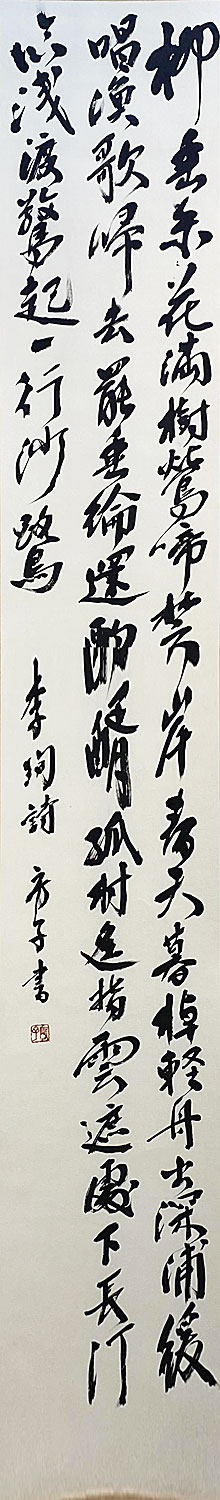 柳垂糸花満樹鶯啼楚岸春天暮棹軽舟出深浦緩
唱漁歌帰去罷垂綸還酌醑孤村遥指雲遮處下長汀
臨淺渡驚起一行沙鷺
李珣詩 方子書